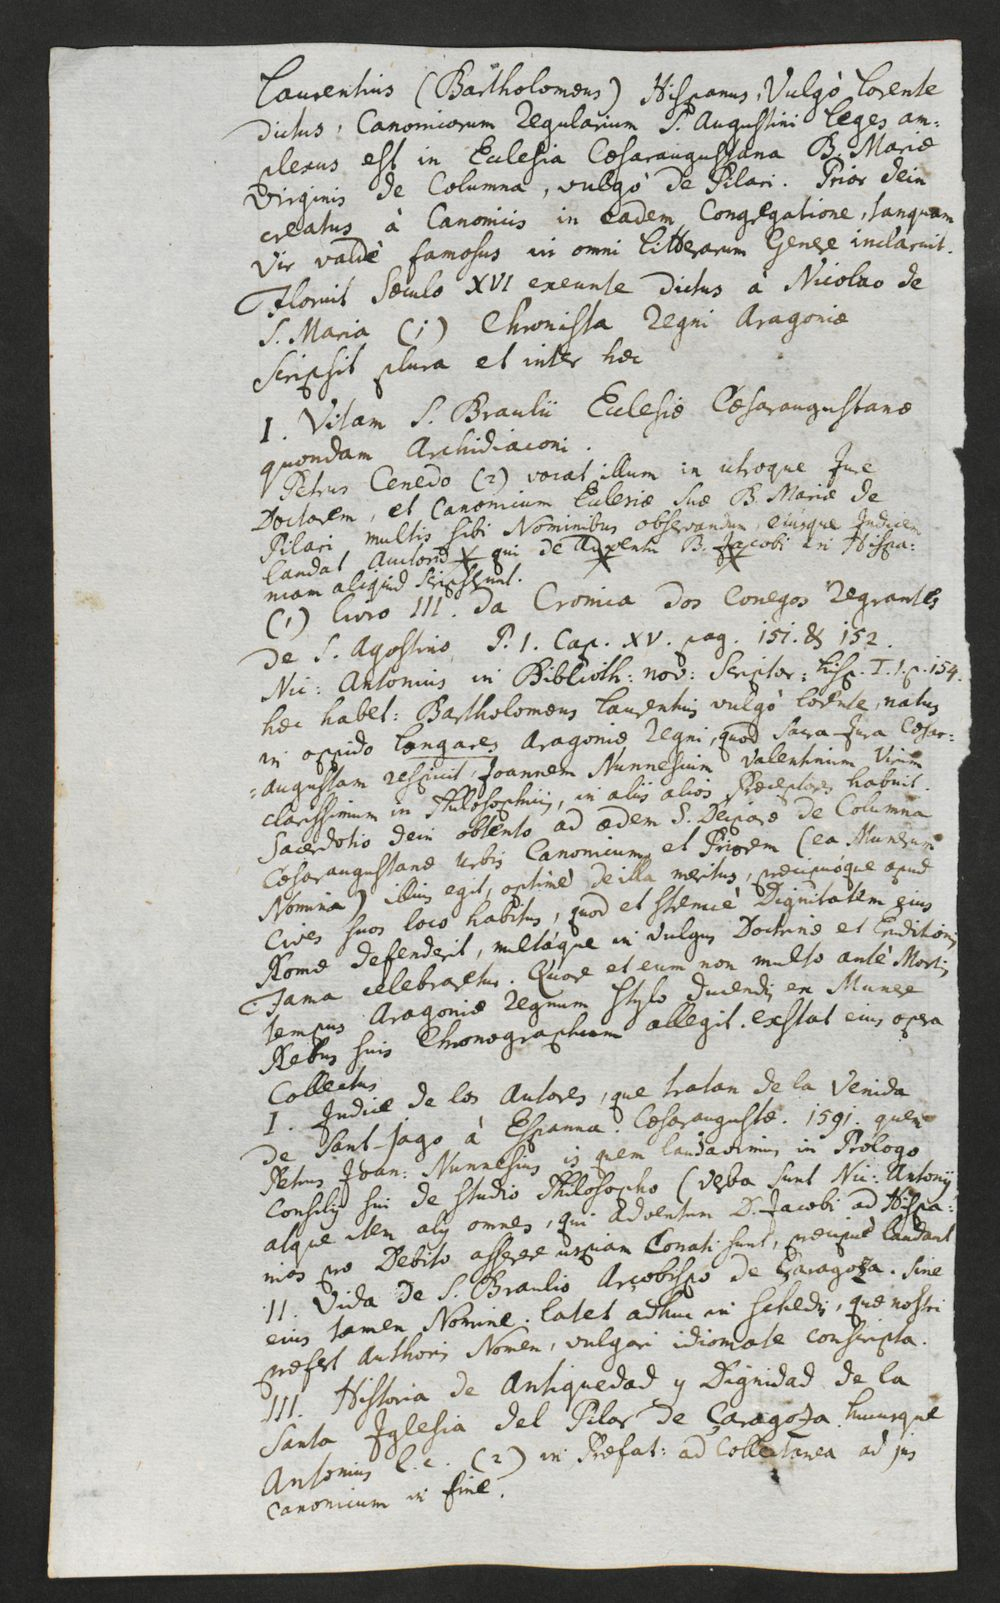 Laurentius (Bartholomæus) Hispanus, Vulgò Lorente
dictus, Canonicorum Regularium S. Augustini Leges am:
plexus est in Eclesia Cæsaraugustana B. Mariæ
Virginis de Columna, vulgò de Pilari. Prior dein
creatus à Canonicis in eadem Congregatione, tanquam
Vir valdè famosus in omni Litterarum Genere inclaruit.
Floruit Sæculo XVI exeunte dictus à Nicolao de
S. Maria (1) Chronista Regni Aragoniæ
Scripsit plura et inter hæc
I. Vitam S. Braulii Eclesiæ Cæsaraugustanæ
quondam Archidiaconi.
Petrus Cenedo (2) vocat illum in utroque Jure
Doctorem, et Canonicum Eclesiæ suæ B. Mariæ de
Pilari multis sibi Nominibus observandum, eiusque Indicem
laudat Auctorū qui de Adventu B. Jacobi in Hispa:
niam aliquid scripserunt.
(1) Livro III. da Cronica dos Conegos Regrantes
de S. Agostino P. 1. Cap. XV. pag. 151. & 152.
Nic: Antonius in Biblioth: nov: Scriptor: hisp. T. 1. p. 154.
hæc habet: Bartholomæus Laurentius vulgò Lorente, natus
in oppido Longares Aragoniæ Regni, quod Sacra Jura Cæsar:
:augustam respicit, Joannem Nunnesium Valentinum Virum
clarissimum in Philosophicis, in aliis alios Præceptores habuit.
Sacerdotio dein obtento ad ædem S. Deiparæ de Columna
Cæsaraugustanæ Urbis Canonicum, et Priorem (ea Munerum
Nomina) illius egit, optimè de illa meritus, præcipuòque apud
Cives suos loco habitus, quod et strenuè Dignitatem eius
Romæ defenderit, multàque in vulgus Doctrinæ et Eruditionis
Fama celebraretur. Quare et eum non multo antè Mortis
tempus Aragoniæ Regnum stylo ducendis ex Munere
Rebus suis Chronographum allegit. exstat eius opera
Collectus
I. Indice de los Autores, que tratan de la Venida
de Sant-Jago à Espanna. Cæsaraugustæ. 1591. quem
Petrus Joan: Nunnesius is quem laudavimus in Prologo
Consilij sui de studio Philosopho (verba sunt Nic: Antonij
atque item alij omnes, qui adventum D. Jacobi ad Hispa:
nias pro Debito asserere uspiam Conati sunt, præcipuè laudant
II. Vida de S. Braulio Arçobispo de Çaragoza. Sine
eius tamen Nomine. Latet adhuc in schedis, quæ nostri
præfert Authoris Nomen, vulgari idiomate conscripta.
III. Historia de Antiquedad y Dignidad de la
Santa Iglesia del Pilar de Çaragoza. hucusque
Antonius l. c. (2) in Præfat: ad Collectanea ad jus
Canonicum in fine.